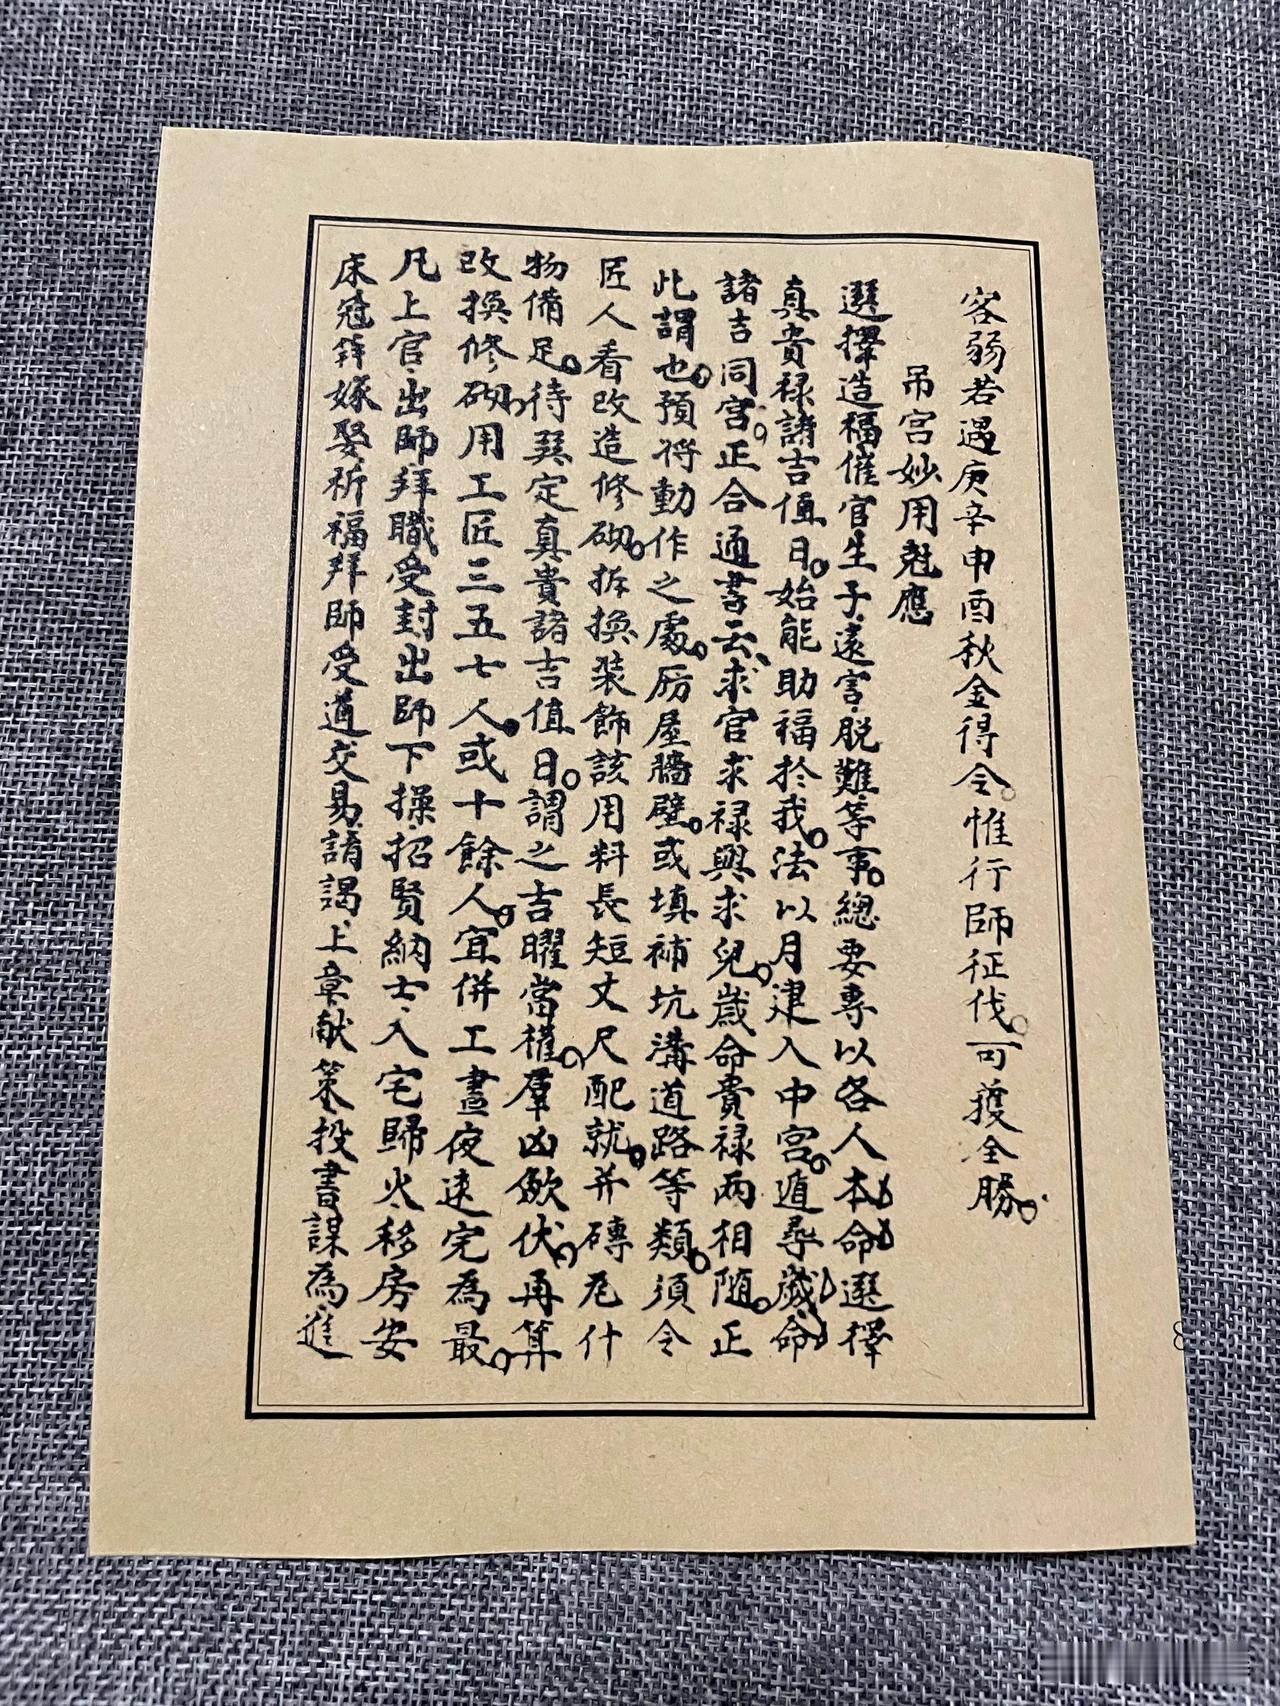 客弱若遇庚辛申酉秋金得令。惟行師征伐。可獲全勝。
吊宮妙用尅應
選擇造福催官生子、遠害、脫難、等事。總要專以各人本命選擇
真貴祿諸吉値日。始能助福於我。法以月建入中宮。遁尋歲命
諸吉同宮。正合通書云、求官求祿與求兒。歲命貴祿兩相隨。正
此謂也。預將動作之處。房屋牆壁。或填補坑溝道路等類。須令
匠人看改造修砌。拆換裝飾該用料長短丈尺配就。并磚瓦什
物備足。待巽定真貴諸吉值日。謂之吉曜當權。羣凶歛伏。再算
改換修砌。用工匠三五七人。或十餘人。宜併工晝夜速完為最。
凡上官、出師、拜職受封出師下操、招賢納士、入宅歸火、移房安
床冠笄嫁娶、祈福拜師受道交易、請謁、上章献策、投書謀為、進